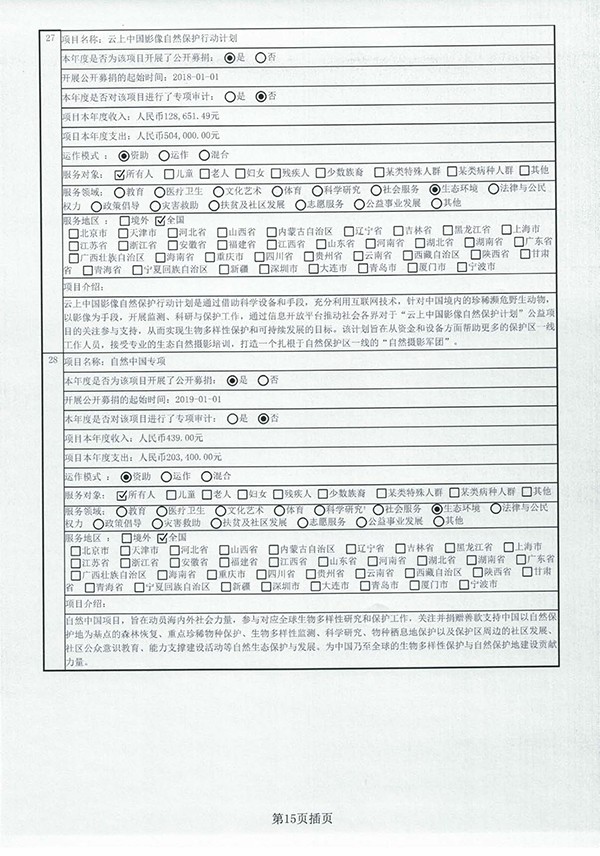 27 项目名称：云上中国影像自然保护行动计划
本年度是否为该项目开展了公开募捐：◉是 ○否
开展公开募捐的起始时间：2018-01-01
本年度是否对该项目进行了专项审计：○是 ◉否
项目本年度收入：人民币128,651.49元
项目本年度支出：人民币504,000.00元
运作模式：◉资助 ○运作 ○混合
服务对象：☑所有人 □儿童 □老人 □妇女 □残疾人 □少数族裔 □某类特殊人群 □某类病种人群 □其他
服务领域：○教育 ○医疗卫生 ○文化艺术 ○体育 ○科学研究 ○社会服务 ◉生态环境 ○法律与公民
权力 ○政策倡导 ○灾害救助 ○扶贫及社区发展 ○志愿服务 ○公益事业发展 ○其他
服务地区：□境外 ☑全国
□北京市 □天津市 □河北省 □山西省 □内蒙古自治区 □辽宁省 □吉林省 □黑龙江省 □上海市
□江苏省 □浙江省 □安徽省 □福建省 □江西省 □山东省 □河南省 □湖北省 □湖南省 □广东省
□广西壮族自治区 □海南省 □重庆市 □四川省 □贵州省 □云南省 □西藏自治区 □陕西省 □甘肃
省 □青海省 □宁夏回族自治区 □新疆 □深圳市 □大连市 □青岛市 □厦门市 □宁波市
项目介绍：
云上中国影像自然保护行动计划是通过借助科学设备和手段，充分利用互联网技术，针对中国境内的珍稀濒危野生动物，
以影像为手段，开展监测、科研与保护工作，通过信息开放平台推动社会各界对于“云上中国影像自然保护计划”公益项
目的关注参与支持，从而实现生物多样性保护和可持续发展的目标。该计划旨在从资金和设备方面帮助更多的保护区一线
工作人员，接受专业的生态自然摄影培训，打造一个扎根于自然保护区一线的“自然摄影军团”。
28 项目名称：自然中国专项
本年度是否为该项目开展了公开募捐：◉是 ○否
开展公开募捐的起始时间：2019-01-01
本年度是否对该项目进行了专项审计：○是 ◉否
项目本年度收入：人民币439.00元
项目本年度支出：人民币203,400.00元
运作模式：◉资助 ○运作 ○混合
服务对象：☑所有人 □儿童 □老人 □妇女 □残疾人 □少数族裔 □某类特殊人群 □某类病种人群 □其他
服务领域：○教育 ○医疗卫生 ○文化艺术 ○体育 ○科学研究 ○社会服务 ◉生态环境 ○法律与公民
权力 ○政策倡导 ○灾害救助 ○扶贫及社区发展 ○志愿服务 ○公益事业发展 ○其他
服务地区：□境外 ☑全国
□北京市 □天津市 □河北省 □山西省 □内蒙古自治区 □辽宁省 □吉林省 □黑龙江省 □上海市
□江苏省 □浙江省 □安徽省 □福建省 □江西省 □山东省 □河南省 □湖北省 □湖南省 □广东省
□广西壮族自治区 □海南省 □重庆市 □四川省 □贵州省 □云南省 □西藏自治区 □陕西省 □甘肃
省 □青海省 □宁夏回族自治区 □新疆 □深圳市 □大连市 □青岛市 □厦门市 □宁波市
项目介绍：
自然中国项目，旨在动员海内外社会力量，参与对应全球生物多样性研究和保护工作，关注并捐赠善款支持中国以自然保
护地为基点的森林恢复、重点珍稀物种保护、生物多样性监测、科学研究、物种栖息地保护以及保护区周边的社区发展、
社区公众意识教育，能力支撑建设活动等自然生态保护与发展。为中国乃至全球的生物多样性保护与自然保护地建设贡献
力量。
第15页插页